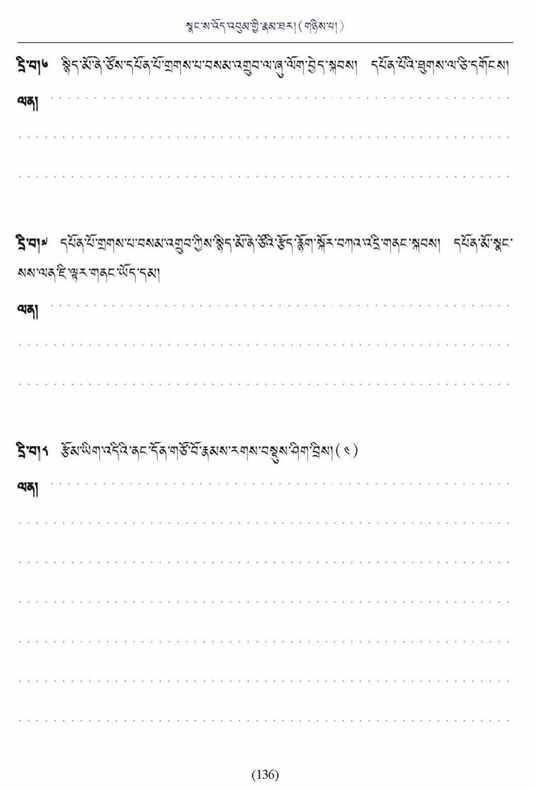 སྣང་ས་འོད་འབུམ་གྱི་རྣམ་ཐར། (གཉིས་པ།)
དྲི་བ།༦ སྙིད་མོ་ནེ་ཙོས་དཔོན་པོ་གྲགས་པ་བསམ་འགྲུབ་ལ་ཞུ་ལོག་བྱེད་སྐབས། དཔོན་པོའི་ཐུགས་ལ་ཅི་དགོངས།
ལན།
དྲི་བ།༧ དཔོན་པོ་གྲགས་པ་བསམ་འགྲུབ་ཀྱིས་སྙིད་མོ་ནེ་ཙོའི་རྩོད་རྙོག་སྐོར་བཀའ་འདྲི་གནང་སྐབས། དཔོན་མོ་སྣང་
སས་ལན་ཇི་ལྟར་གནང་ཡོད་དམ།
ལན།
དྲི་བ།༨ རྩོམ་ཡིག་འདིའི་ནང་དོན་གཙོ་བོ་རྣམས་རགས་བསྡུས་ཤིག་བྲིས། (༤)
ལན།
(136)